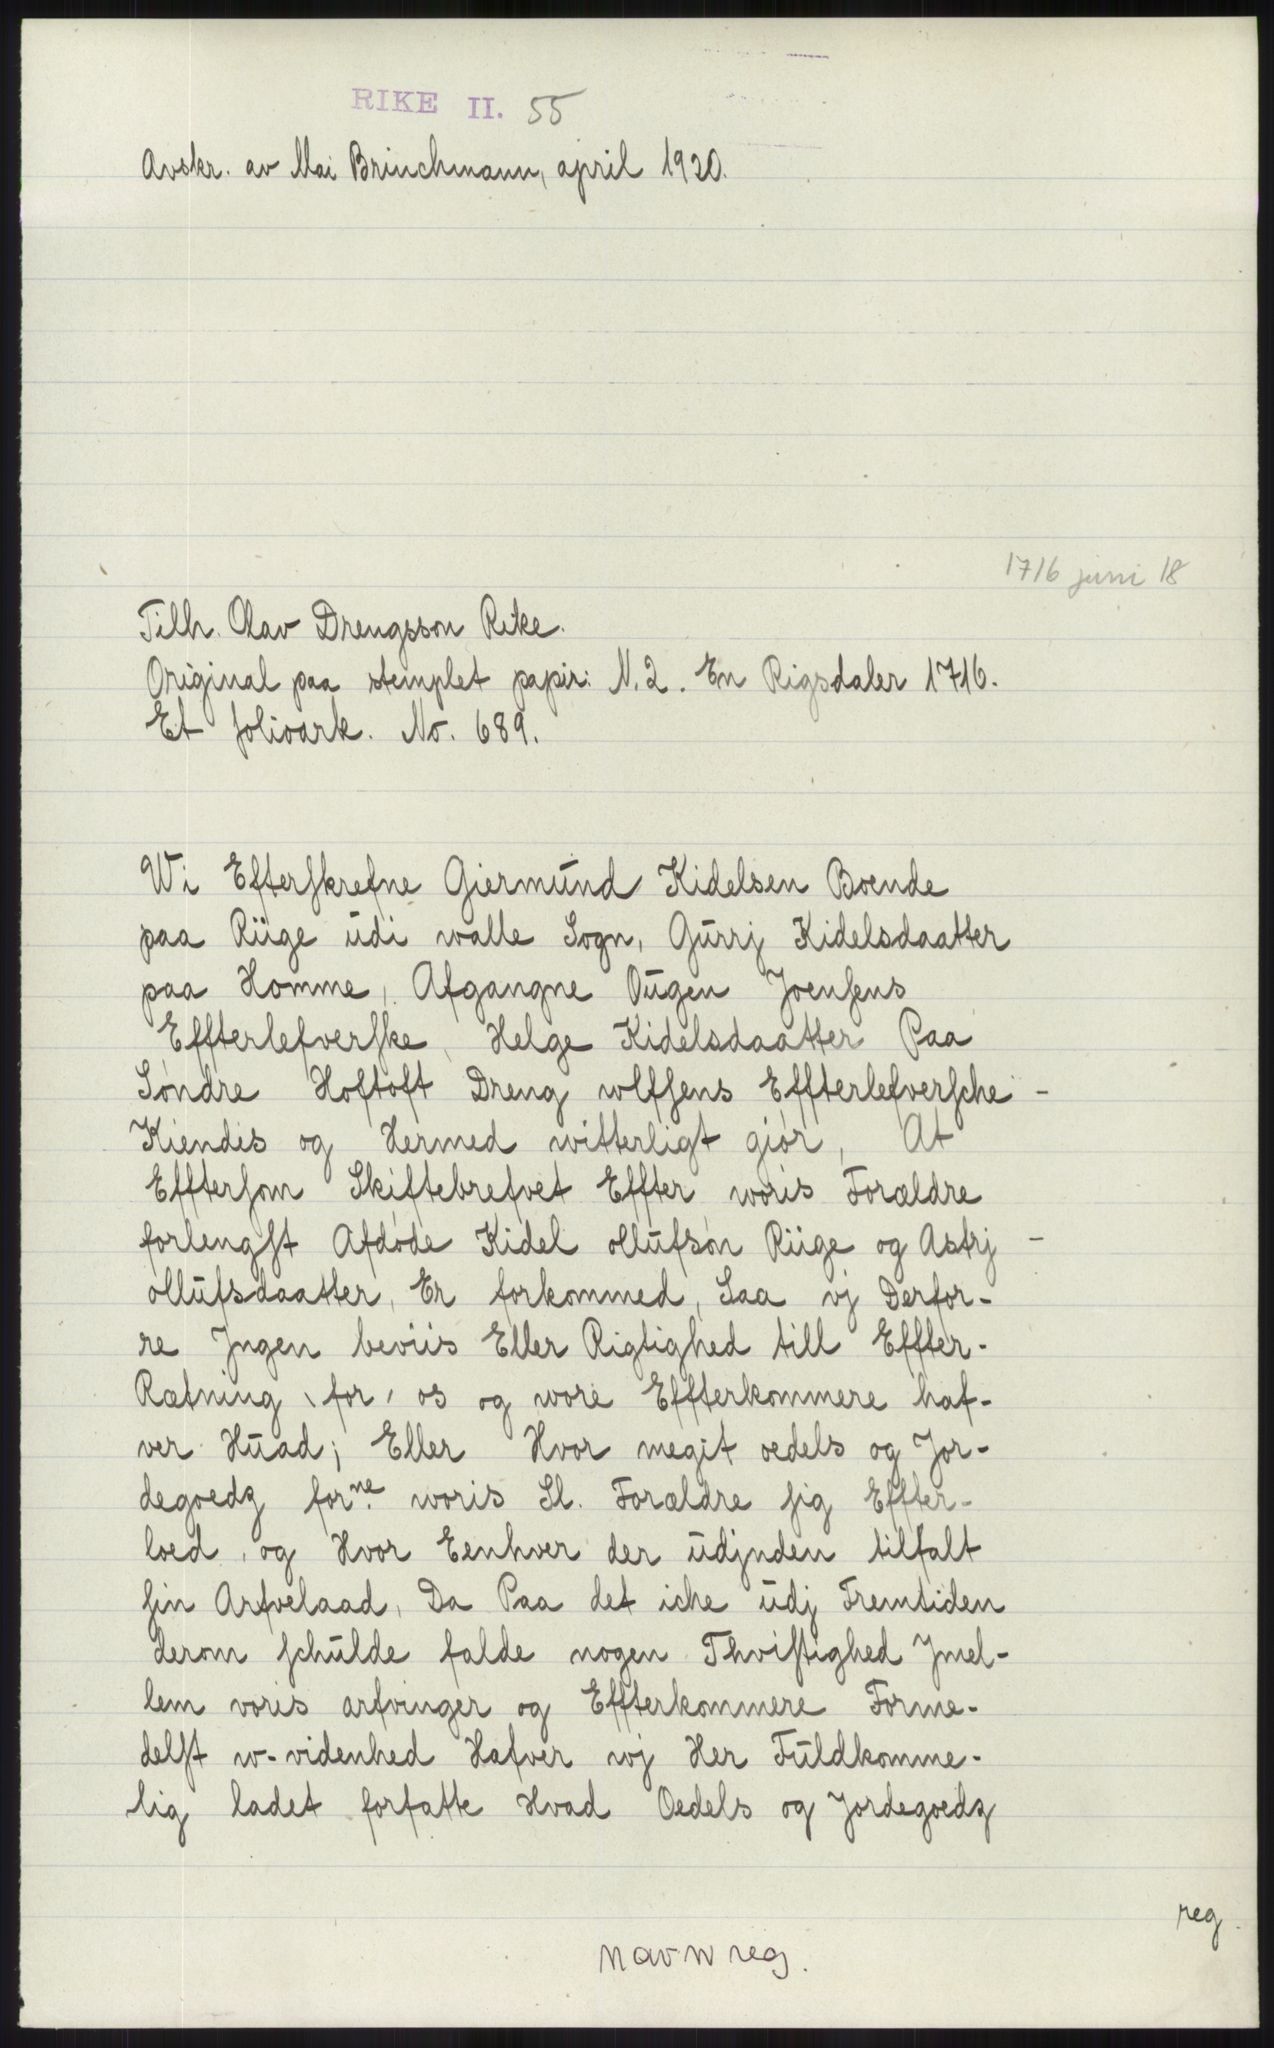 RIKE II. 55
Avskr. av Mai Brinchmann, april 1920.
1716 juni 18
Tilh. Olav Drengsson Rike.
Original paa stemplet papir: N. 2. En Rigsdaler 1716.
Et folioark. No. 689.
Wi Efterskrefne Giermūnd Kidelsen Boende
paa Rüge ūdi walle Sogn, Gūrrj Kidelsdaatter
paa Homme, Afgangne Oūgen Joensens
Effterlefverske, Helge Kidelsdaatter Paa
Søndre Hoftoft Dreng wlfsens Effterlefversche -
Kiendes og Hermed witterligt giør, At
Efftersom Skiftebrefvet Effter woris Forældre
forlengst Afdøde Kidel ollūfsøn Rüge og Astrj -
ollūfsdaatter, Er forkommed, Saa vj Derfor-
re Jngen beviis Eller Rigtighed till Effter-
Rætning for os og wore Effterkommere haf-
ver Hūad; Eller Hvor megit oedels og Jor-
degoedz forne. woris Sl. Forældre sig Effter-
loed, og Hvor Eenhver der ūdjnden tilfalt
sin Arfvelaad, Da Paa det iche ūdj Fremtiden
derom schūlde falde nogen Thvistighed Jmel-
lem voris arfvinger og Effterkommere Forme-
delst w-videnhed Hafver wj Her Fūldkomme-
lig ladet forfatte Hvad Oedels og Jordegoedz
reg.
navn reg.